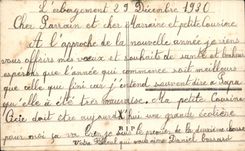 L'ebergement 29 Décembre 1930
Cher Parrain et cher Marraine et petite Cousine
A l'approche de la nouvelle année je viens
vous offrir mes vœux et souhait de santé et bonheur
esperons que l'année qui commence soit meilleurs
que celle que fini car j'entend souvent dire a Papa
qu'elle à été tres mauvaise. Ma petite Cousine
Cécile doit être aujourd'hui une grande écolière
pour moi ça va bien je suis le premier de la deuxième
Votre Filleul qui vous aime Daniel
RIPL